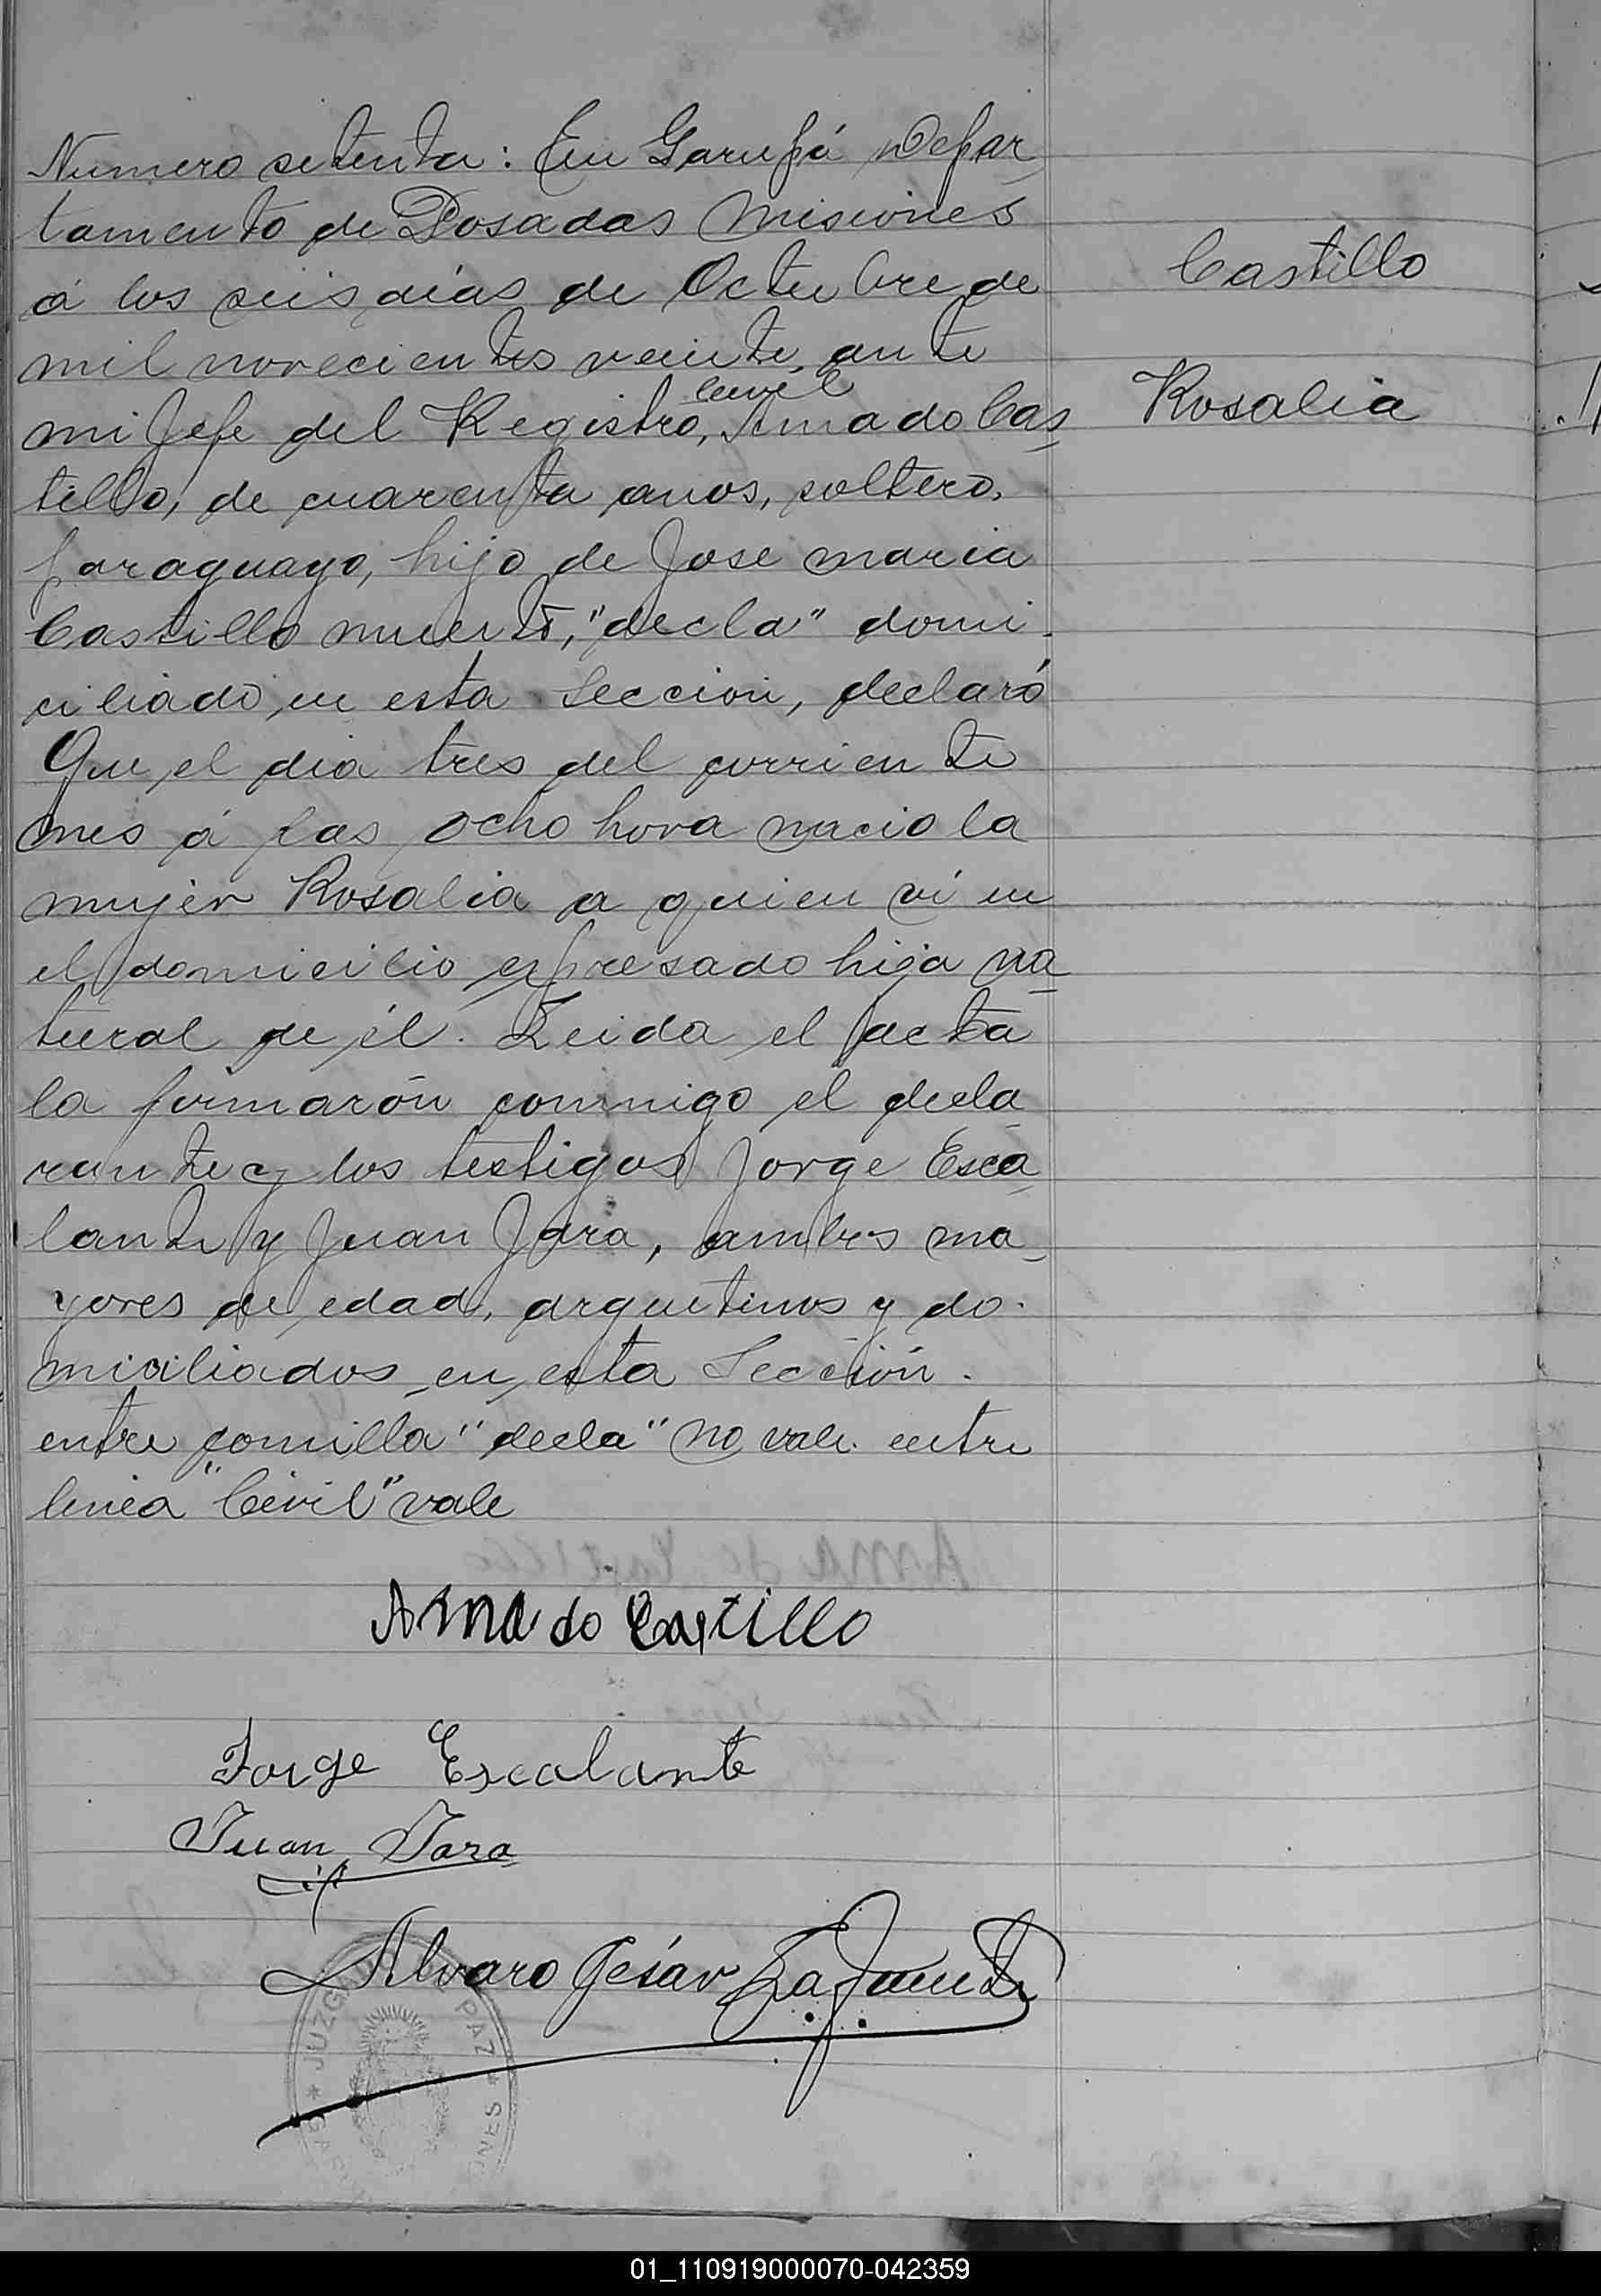 Numero setenta: En Garupá Depar
tamento de Posadas Misiones
á los seis dias de Octubre de
mil novecientos veinte, ante
civil
mi Jefe del Registro, Amado Cas
tillo, de cuarenta anos, soltero,
paraguayo, hijo de Jose maria
Castillo muerto, "decla" domi
ciliado en esta Seccion, declaró
Que el dia tres del corriente
mes á las ocho hora nacio la
mujer Rosalia a quien ví en
el domicilio espresado hija na
tural de él. Leida el acta
la firmarón conmigo el decla
rante y los testigos Jorge Esca
lante y Juan Jara, ambos ma
yores de edad, argentinos y do
miciliados en esta Sección.
entre comilla "decla" no vale. entre
linea "Civil" vale
Castillo
Rosalia
Amado Castillo
Jorge Escalante
Juan Jara
Alvaro César
JUZG PAZ
01_110919000070-042359